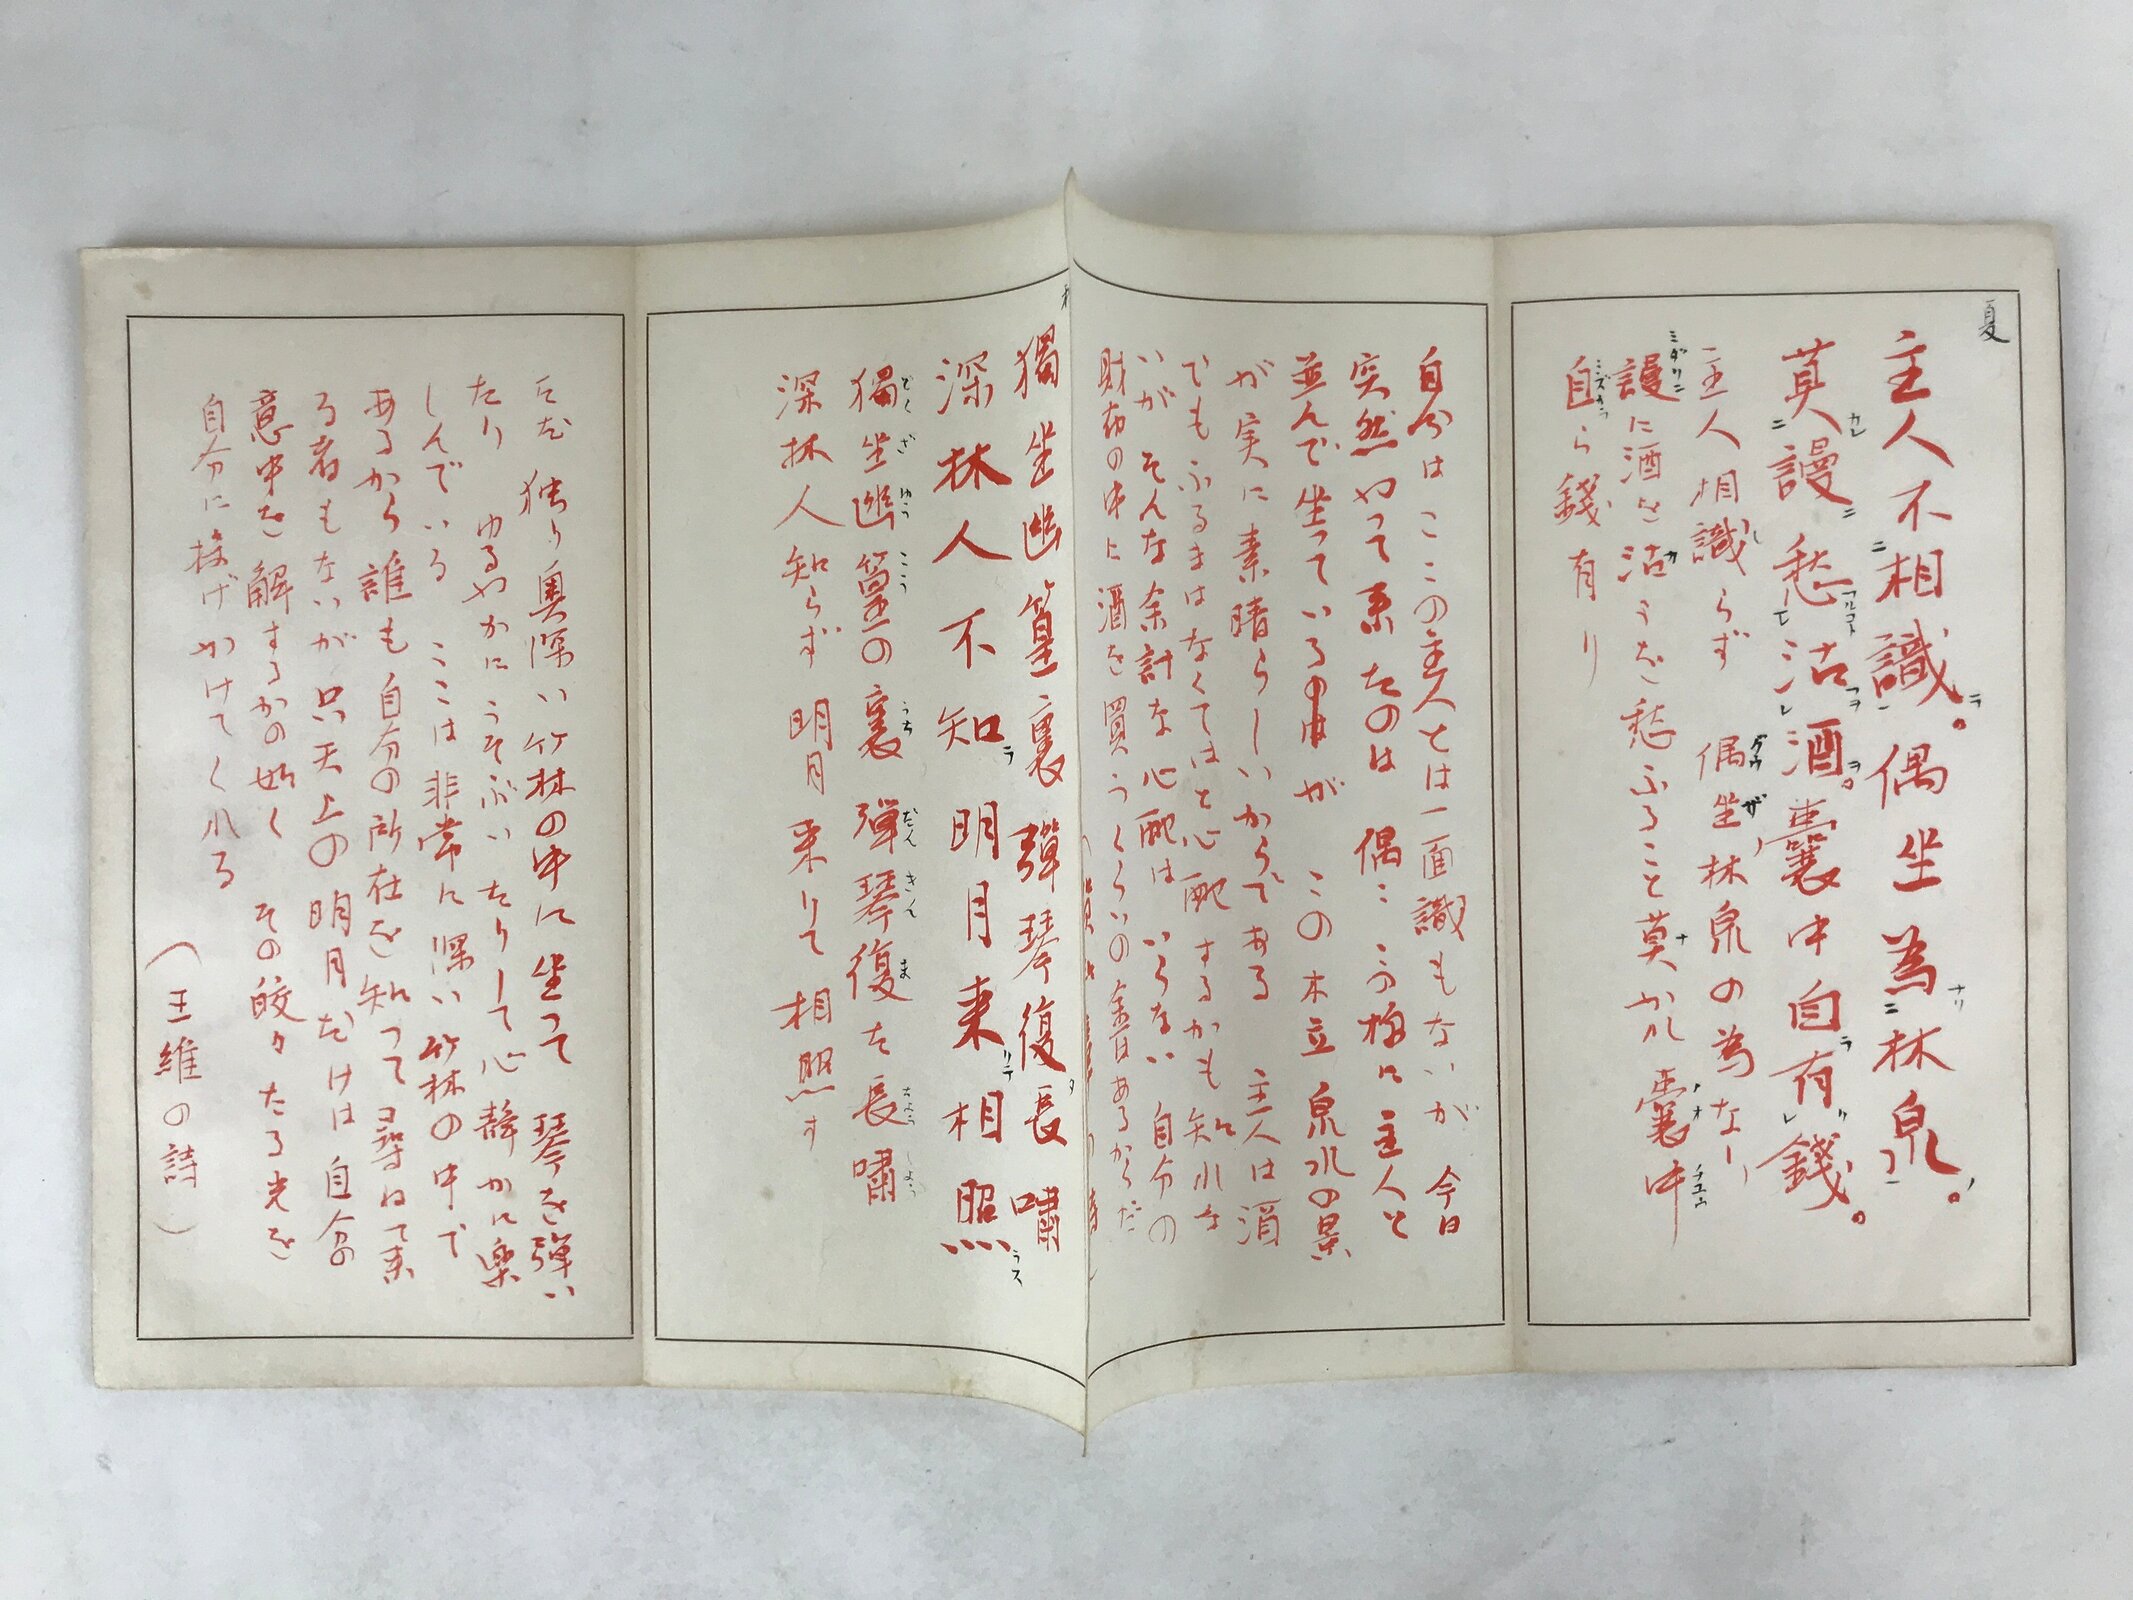 夏
主人不相識。偶坐為林泉。
莫謾愁沽酒。囊中自有錢。
主人相識らず 偶坐林泉の為なり
謾に酒を沽うを愁ふること莫かれ 囊中
自ら錢有り
自分はここの主人とは一面識もないが 今日
突然やって来たのは 偶こ
並んで坐っているの
が この木立泉水の景
が実に素晴らしいからである 主人は酒
でもふるまはなくてはと心配するかも知れな
いが そんな余計な心配はいらない 自分の
財布の中に酒を買うくらいの金はあるからだ
獨坐幽篁裏 彈琴復長嘯
深林人不知 明月来相照
獨坐幽篁の裏 弾琴復た長嘯
深林人知らず 明月来りて相照す
独り奥深い竹林の中に坐って 琴を弾い
たり ゆるやかにうそぶいたりして心静かに楽
しんでいる ここは非常に深い竹林の中で
あるから誰も自分の所在を知って尋ねて来
る者もないが 只天上の明月だけは自分の
意中を解するかの如く その皎々たる光を
自分に投げかけてくれる
（王維の詩）